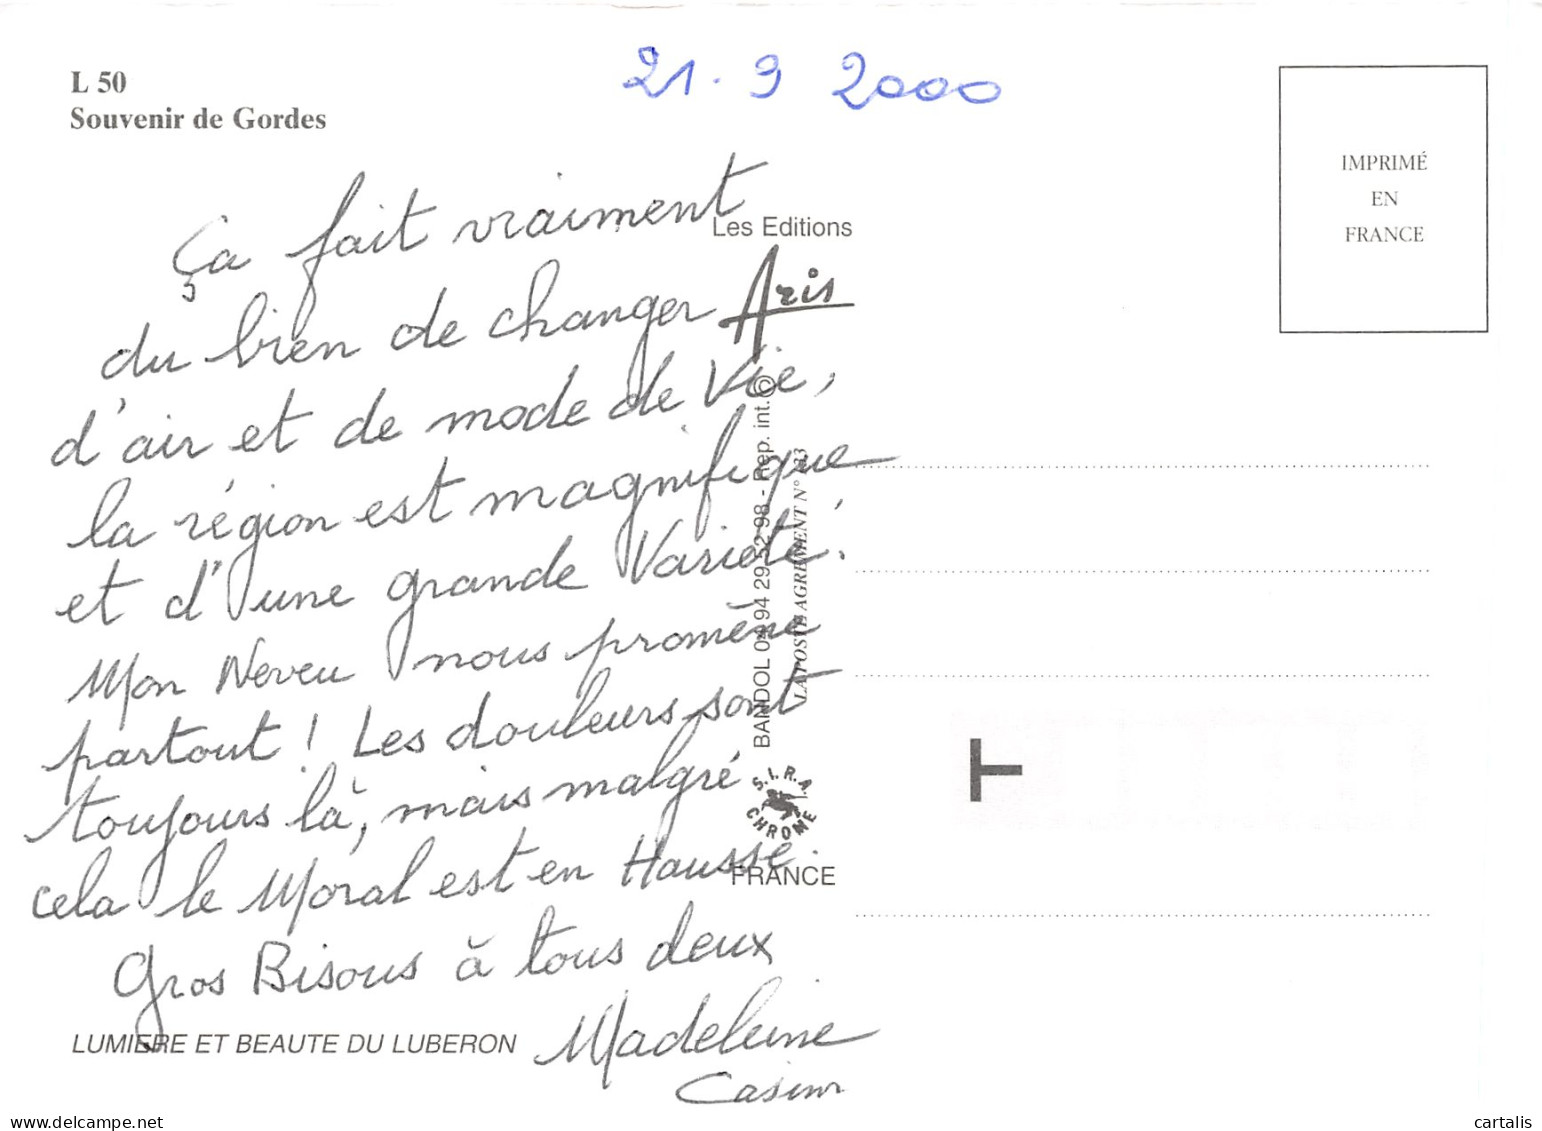 L 50
Souvenir de Gordes
21.9 2000
IMPRIMÉ
EN
FRANCE
Ça fait vraiment
du bien de changer
d'air et de mode de Vie,
la région est magnifique
et d'une grande Varieté!
Mon Neveu nous promène
partout ! Les douleurs sont
toujours là, mais malgré
cela le Moral est en Hausse.
Gros Bisous à tous deux
Madeleine
Casimir
Les Editions
Aris
BANDOL 04 94 29 52 98 - Rep. int. ©
LA POSTE AGREMENT N°
S.I.R.A
CHROME
FRANCE
T
LUMIERE ET BEAUTE DU LUBERON
cartalis